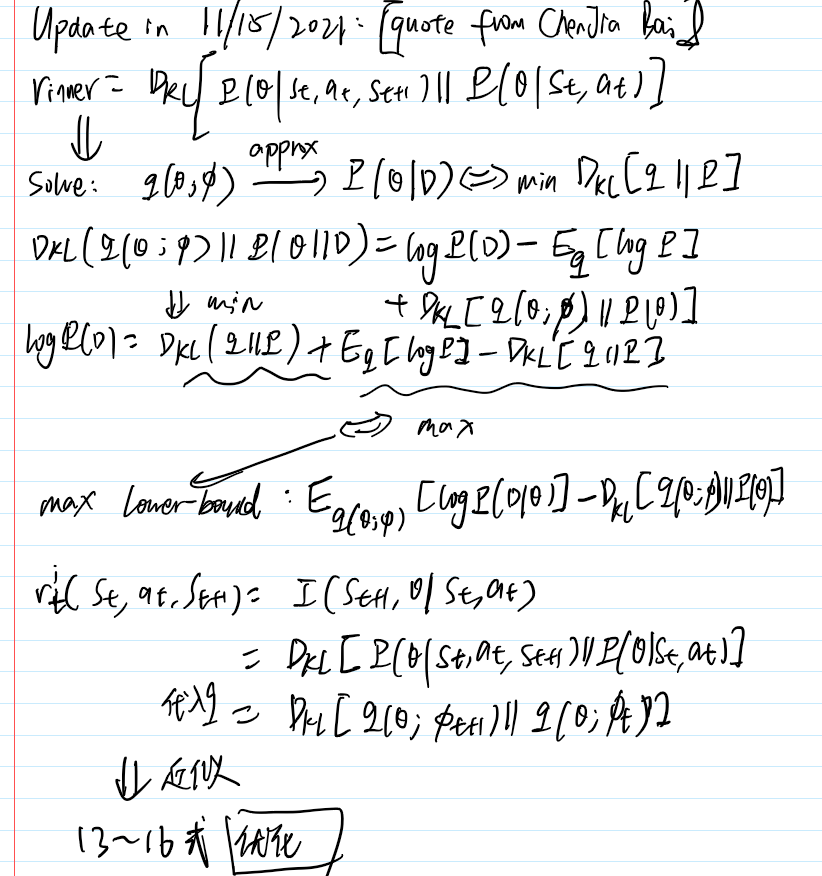 Update in 11/15/2021: [quote from ChenJia Bai]
rinner = DKL[P(θ|St, at, St+1) || P(θ|St, at)]
⇓
Solve: q(θ;φ) approx→ P(θ|D) ⇔ min DKL[q||P]
DKL(q(θ;φ) || P(θ||D) = log P(D) - Eq[log P]
⇓ min + DKL[q(θ;φ) || P(θ)]
log P(D) = DKL(q||P) + Eq[log P] - DKL[q||P]
⇔ max
max lower-bound : Eq(θ;φ) [log P(D|θ)] - DKL[q(θ;φ)||P(θ)]
rti(St, at, St+1) = I(St+1, θ|St, at)
= DKL[P(θ|St, at, St+1) || P(θ|St, at)]
代入q = DKL[q(θ;φt+1) || q(θ;φt)]
⇓ 近似
13~16式 优化